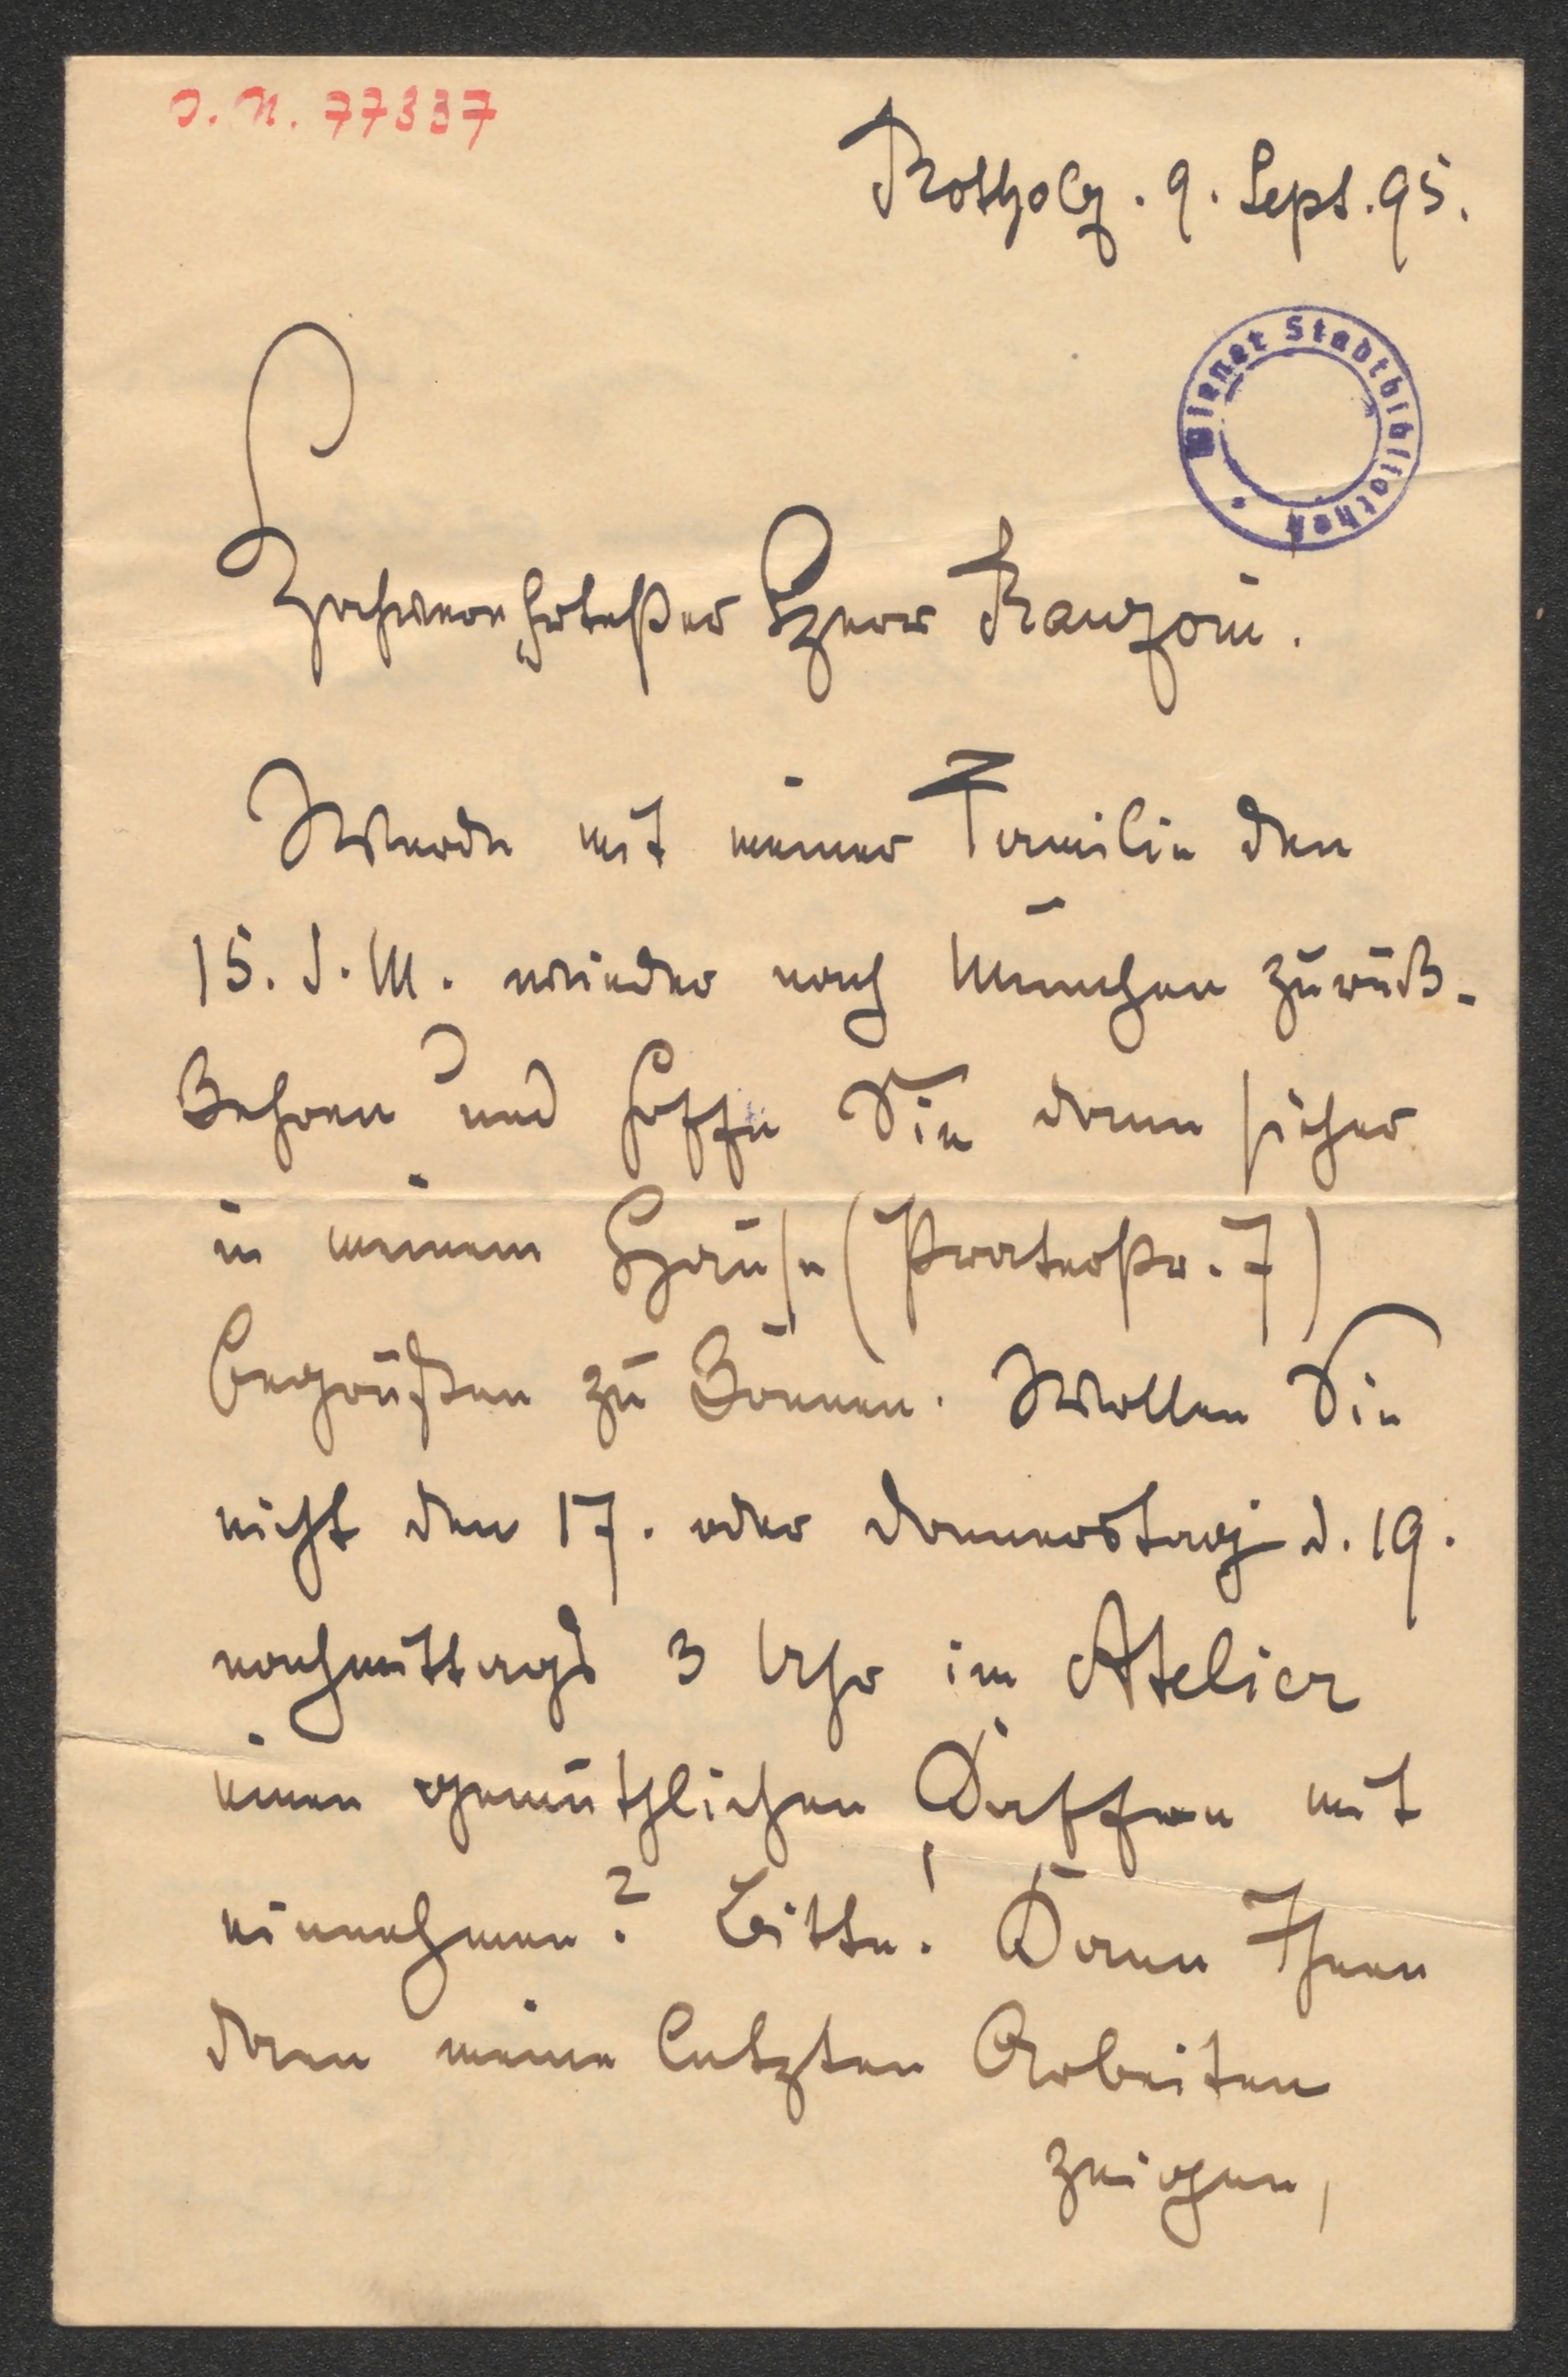 J. N. 77337
Rotholz. 9. Sept. 95.
Wiener Stadtbibliothek
Hochverehrtester Herr Ranzoni.
Werde mit meiner Familie den
15. d. M. wieder nach München zurück-
kehren und hoffe Sie dann sicher
in meinem Hause (Praterstr. 7)
begrüßen zu können. Wollen Sie
nicht den 17. oder Donnerstag d. 19.
nachmittags 3 Uhr im Atelier
einen gemüthlichen Kaffee mit
einnehmen? Bitte! Kann Ihnen
dann meine letzten Arbeiten
zeigen,